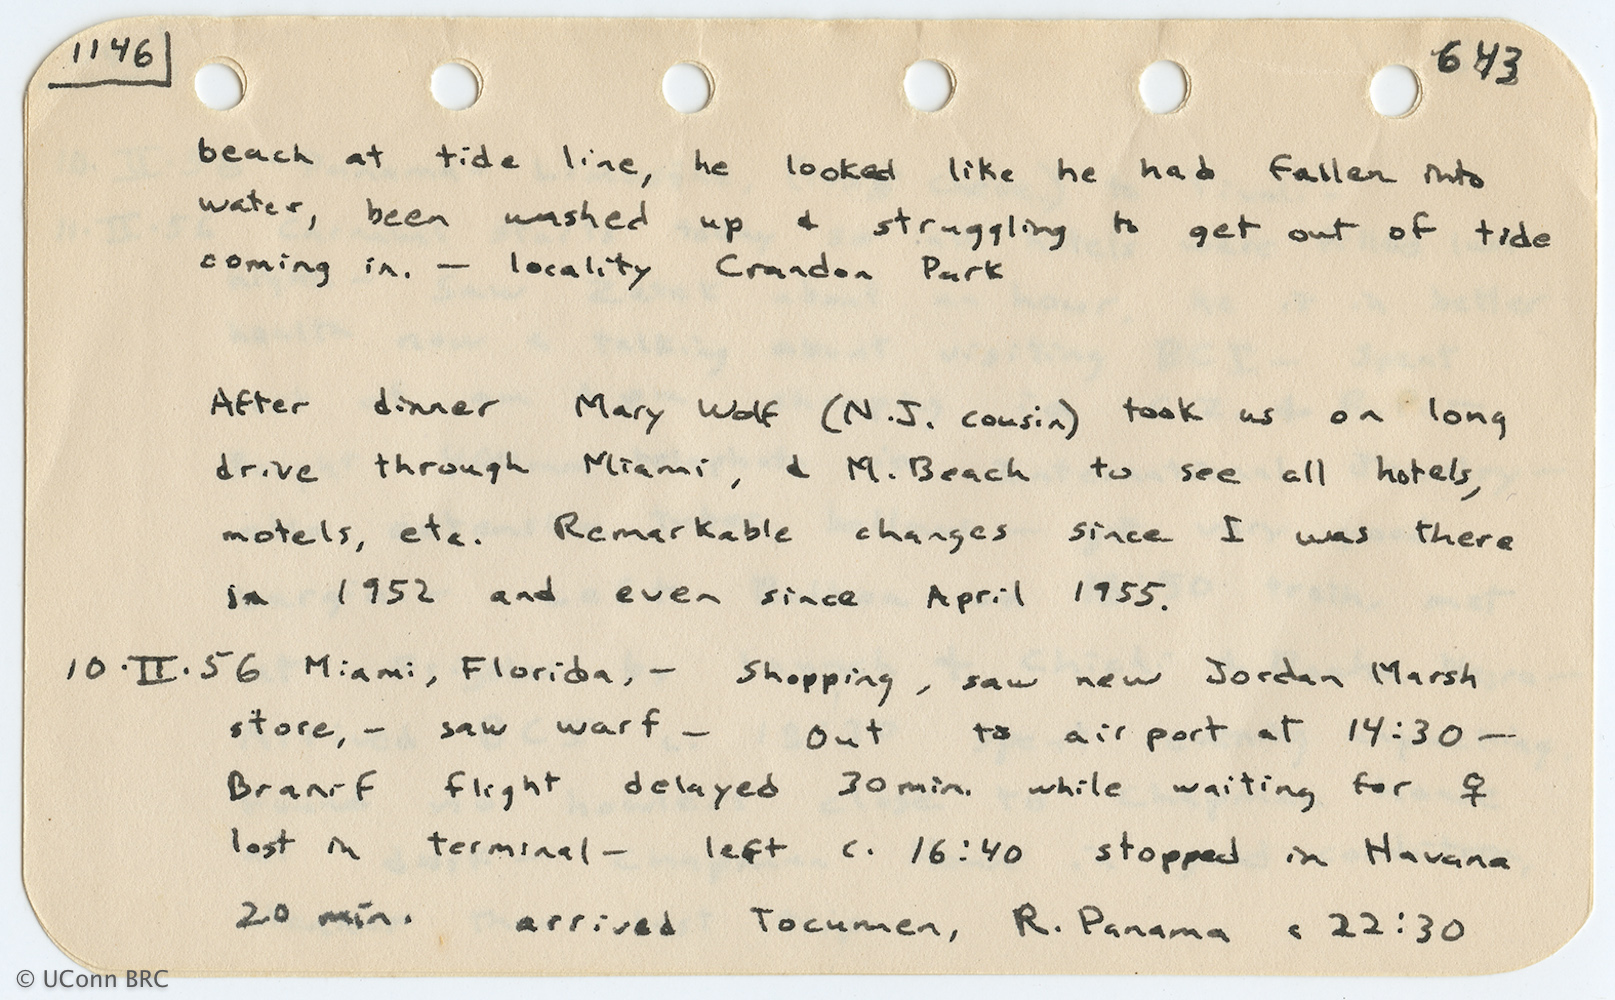 1146
643
beach at tide line, he looked like he had fallen into
water, been washed up & struggling to get out of tide
coming in. — locality Crandon Park
After dinner Mary Wolf (N.J. cousin) took us on long
drive through Miami, & M. Beach to see all hotels,
motels, etc. Remarkable changes since I was there
in 1952 and even since April 1955.
10.II.56 Miami, Florida, — Shopping, saw new Jordan Marsh
store, — saw warf — Out to airport at 14:30 —
Branif flight delayed 30 min. while waiting for ♀
lost in terminal — left c. 16:40 stopped in Havana
20 min. arrived Tocumen, R. Panama c 22:30
© UConn BRC